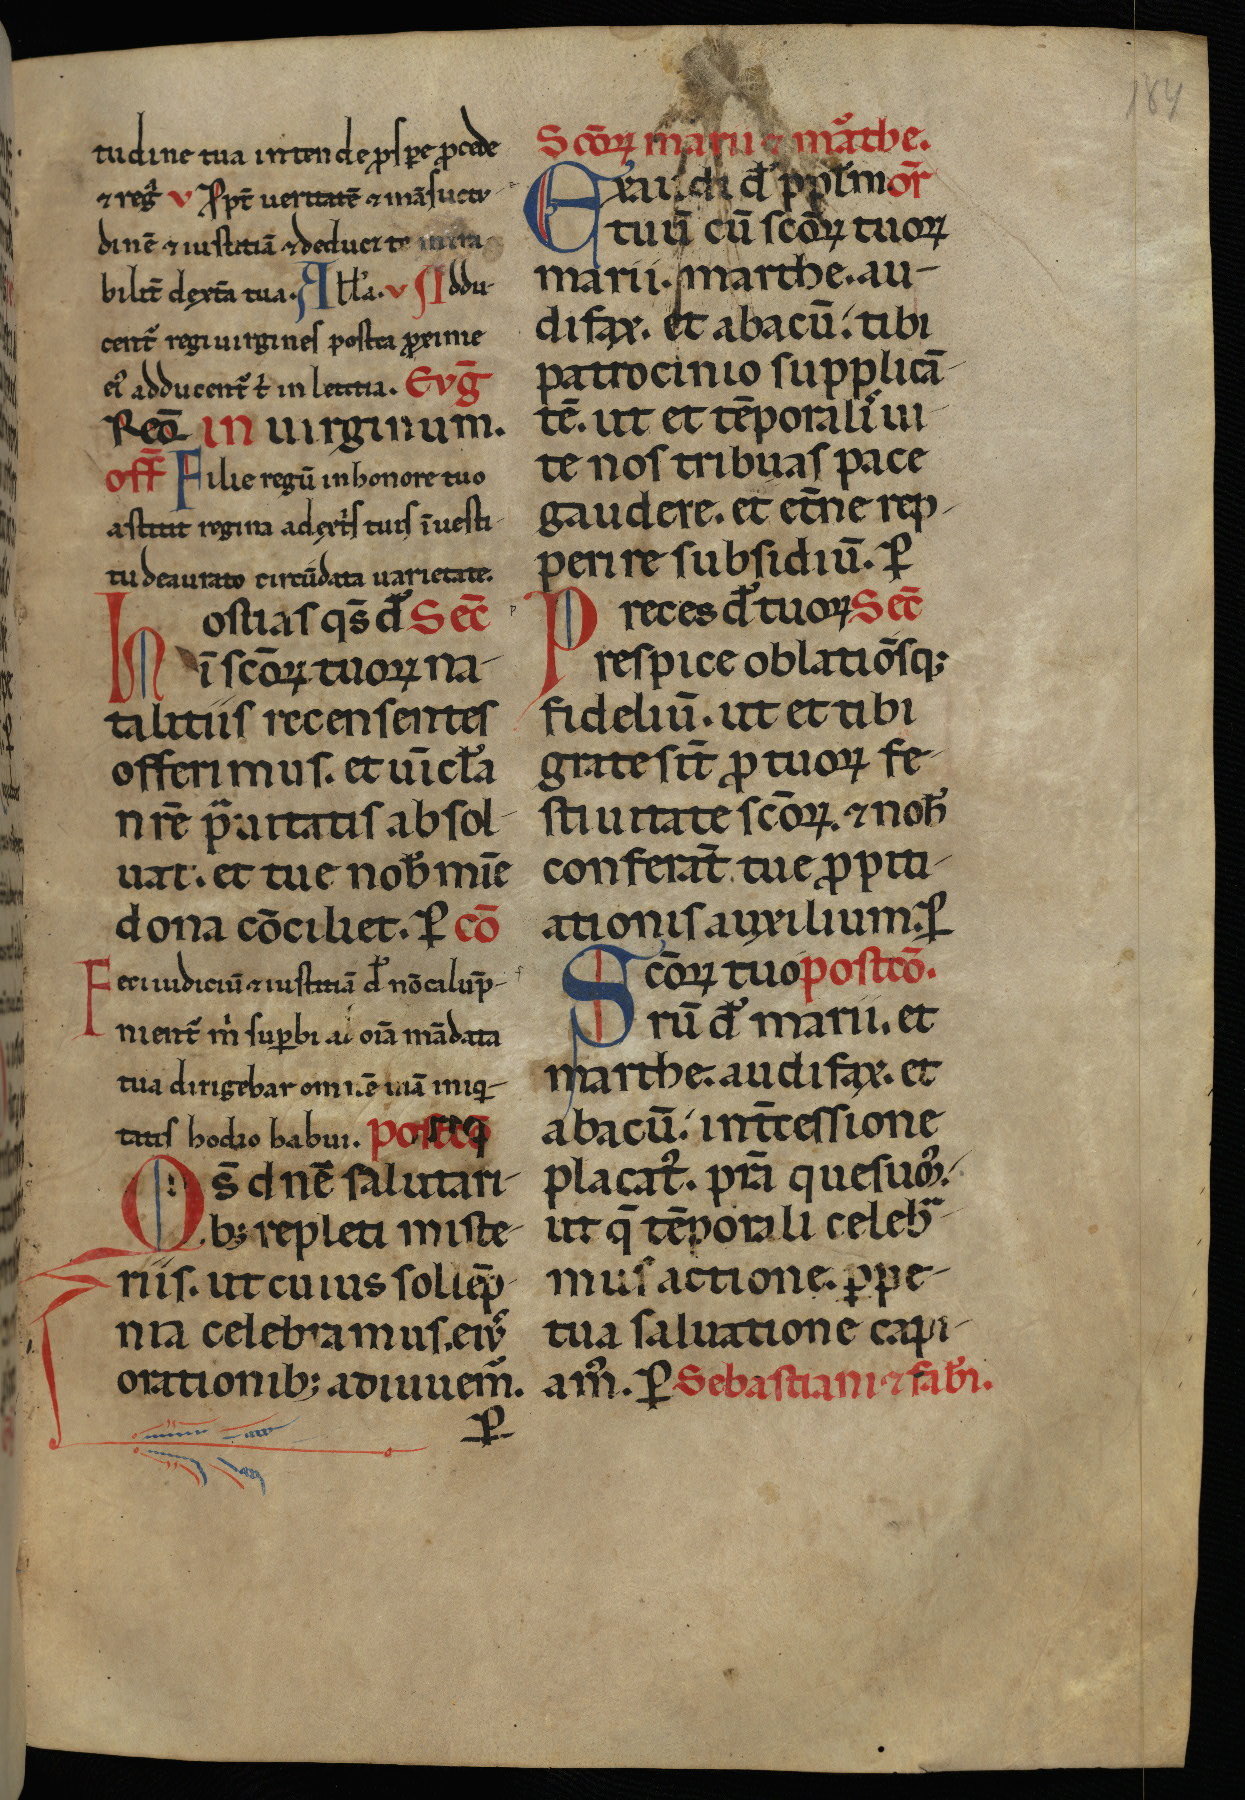 tudine tua intende ꝓspe ꝓcede
⁊ regͣ v Ppt̄ ueritatē ⁊ māsuetu-
dinē ⁊ iustitiā ⁊ deducet te mira
bilit̄ dexta tua. All'a. v Addu-
cent᷑ regi uirgines postea ꝓxime
ei᷒ adducent᷑ t' in letitia. Evg̅
Reō in uirginum.
off̄ Filie regū in honore tuo
astitit regina adext'ſ tuis ī uesti-
tu deaurato circūdata uarietate.
Hostias qs̄ d' Sec̄
ī scōꝝ tuoꝝ na-
talitiis recensentes
offerimus. et uīcl'a
nrē pͣuitatis absol-
uat. et tue nob' mīe
dona cōciliet. P̱ cō
Feci iudiciū ⁊ iustitiā d' nō calūp̄-
nient᷑ m' suꝑbi ad oīa mādata
tua dirigebar omnē uiā iniq-
tatis hodio habui. postcō
Qs̄ dnē salutari-
bꝫ repleti miste-
riis. ut cuius sollēp̄-
nia celebramus. ei᷒
orationibꝫ adiuuem᷒.
P̱
184
Scōꝝ marii ⁊ mathe.
Exaudi d' ppl'm or̄
tuū cū scōꝝ tuoꝝ
marii. marthe. au-
difax. et abacū. tibi
patrocinio supplicā-
tē. ut et tēporali ui-
te nos tribuas pace
gaudere. et et̄ne rep-
perire subsidiū. P̱
Preces d' tuoꝝ Sec̄
respice oblatiōsqꝫ
fideliū. ut et tibi
grate sīt ꝓ tuoꝝ fe-
stiuitate scōꝝ. ⁊ nob'
conferāt tue ꝓpiti-
ationis auxilium. P̱
Scōꝝ tuo postcō.
rū d' marii. et
marthe. audifax. et
abacū. int̄cessione
placat᷒. prā quesum᷒.
ut q̄ tēporali celebͣ-
mus actione. ꝑpe-
tua saluatione capi-
am᷒. P̱ Sebastiani ⁊ fab'i.